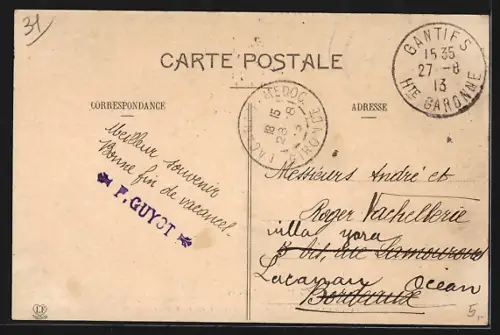 31
CARTE POSTALE
CORRESPONDANCE
ADRESSE
GANTIES
15 35
27 - 8
13
HTE GARONNE
MEDOC
GIRONDE
Meilleur souvenir
Bonne fin de vacances.
F. GUYOT
Messieurs André et
Roger Vachellerie
villa yora
5 bis, rue Lamourous
Lacanau Océan
Bordeaux
5,-